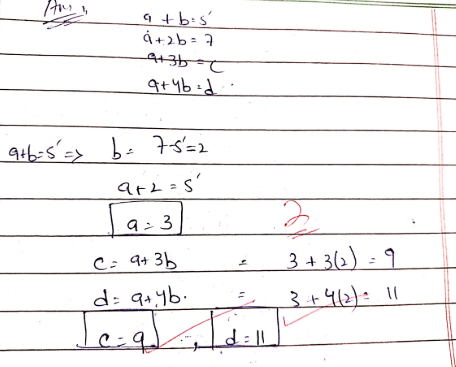 Ans,,
a + b = 5
a + 2b = 7
a + 3b = c
a + 4b = d
a+b=5 => b = 7-5=2
a+2 = 5
a = 3
2
c = a+3b = 3 + 3(2) = 9
d = a+4b. = 3 + 4(2) = 11
c = 9, d = 11